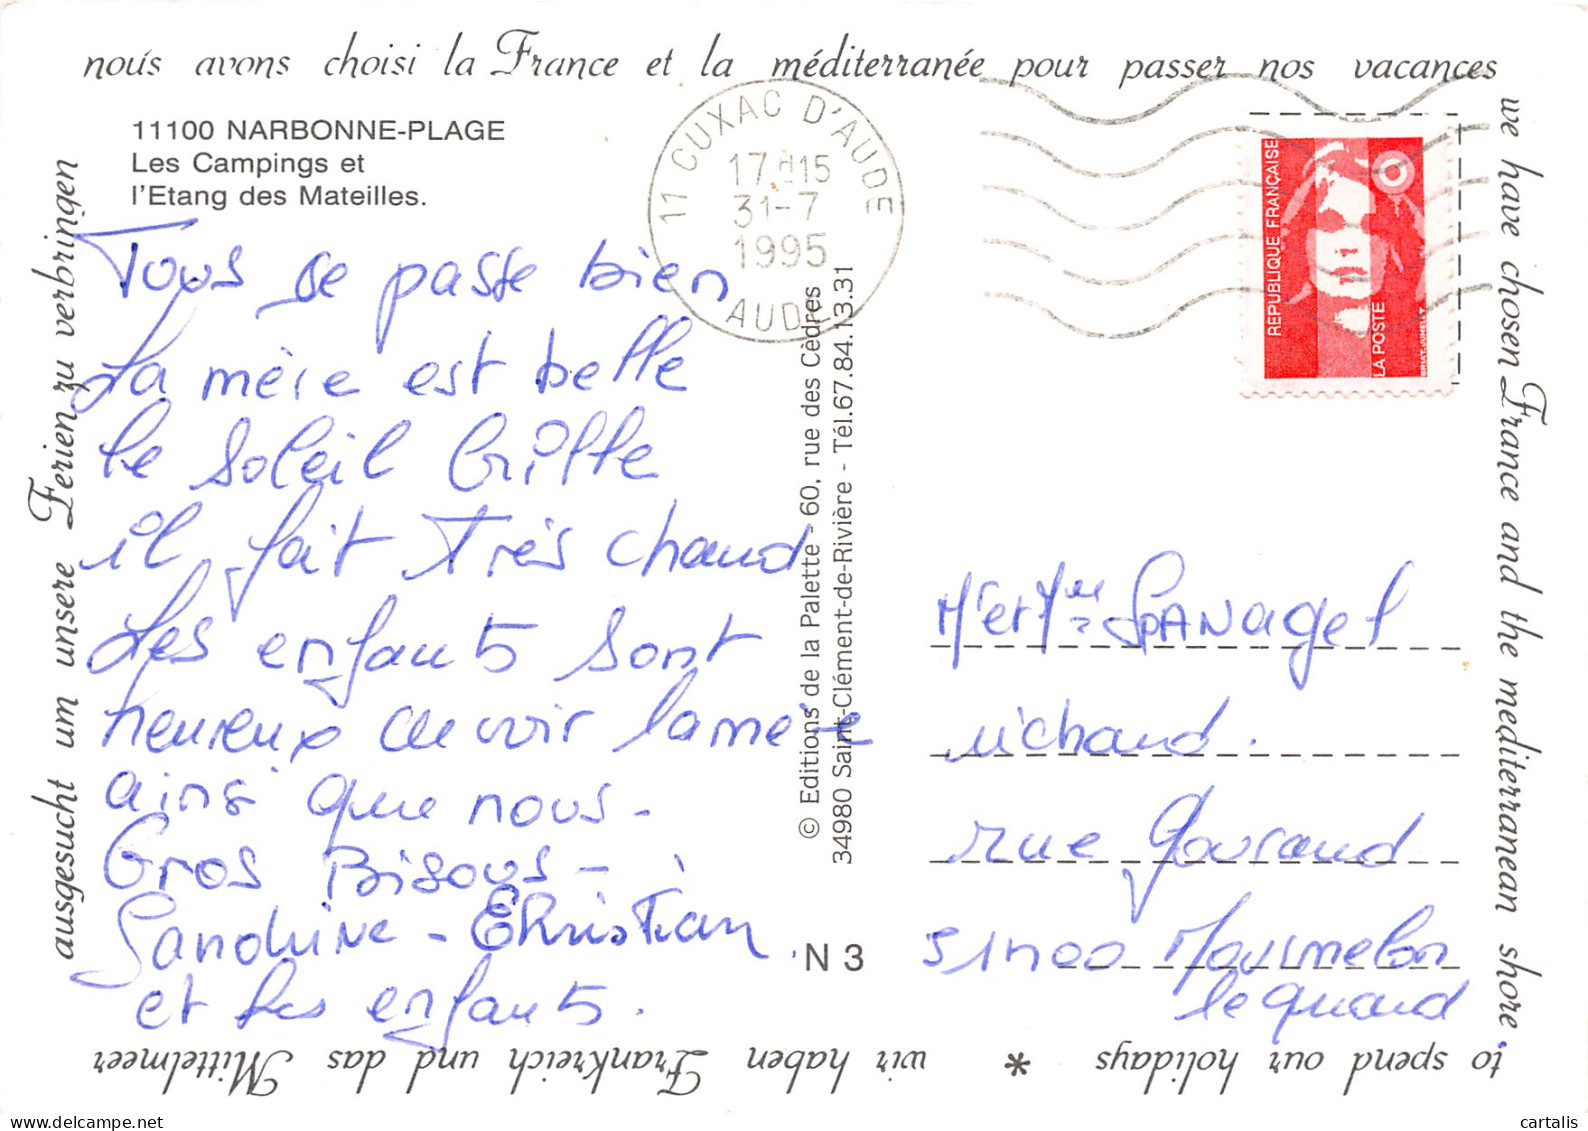 nous avons choisi la France et la méditerranée pour passer nos vacances
we have chosen France and the mediterranean shore
to spend our holidays * wir haben Frankreich und das Mittelmeer
ausgesucht um unsere Ferien zu verbringen
11100 NARBONNE-PLAGE
Les Campings et
l'Etang des Mateilles.
11 CUXAC D'AUDE
17H15
31-7
1995
AUDE
REPUBLIQUE FRANÇAISE
LA POSTE
BRIAT-JUMELET
Tous se passe bien
La mère est belle
le soleil brille
il fait très chaud
Les enfants sont
heureux de voir la mère
ainsi que nous.
Gros Bisous -
Sandrine - Christian
et les enfants.
© Editions de la Palette - 60, rue des Cèdres
34980 Saint-Clément-de-Rivière - Tél.67.84.13.31
N 3
Mr et Melle SPANagel
Richard.
rue Gouraud
51400 Mourmelon
le Grand
cartalis.com